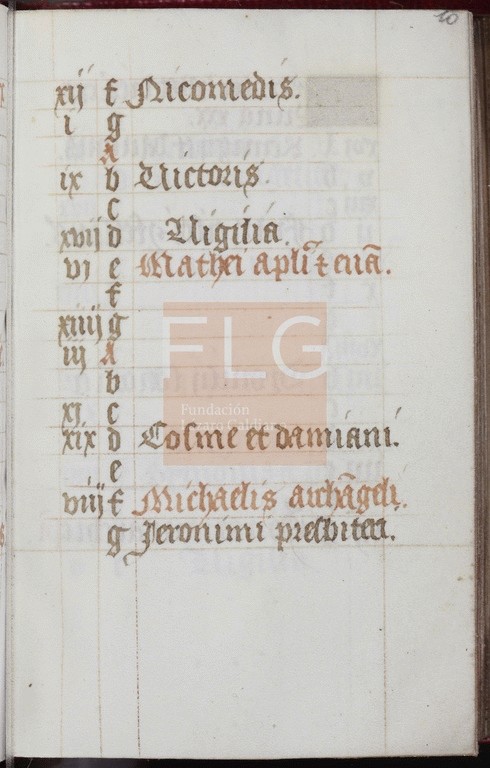 10
xij f Nicomedis.
i g
A
ix b Victoris.
c
xvij d Vigilia.
vj e Mathei apli et euã.
f
xiiij g
iij A
b
xj c
xix d Cosme et damiani.
e
viij f Michaelis archãgeli.
g Jeronimi presbiteri.
FLG
Fundación
Lázaro Galdiano